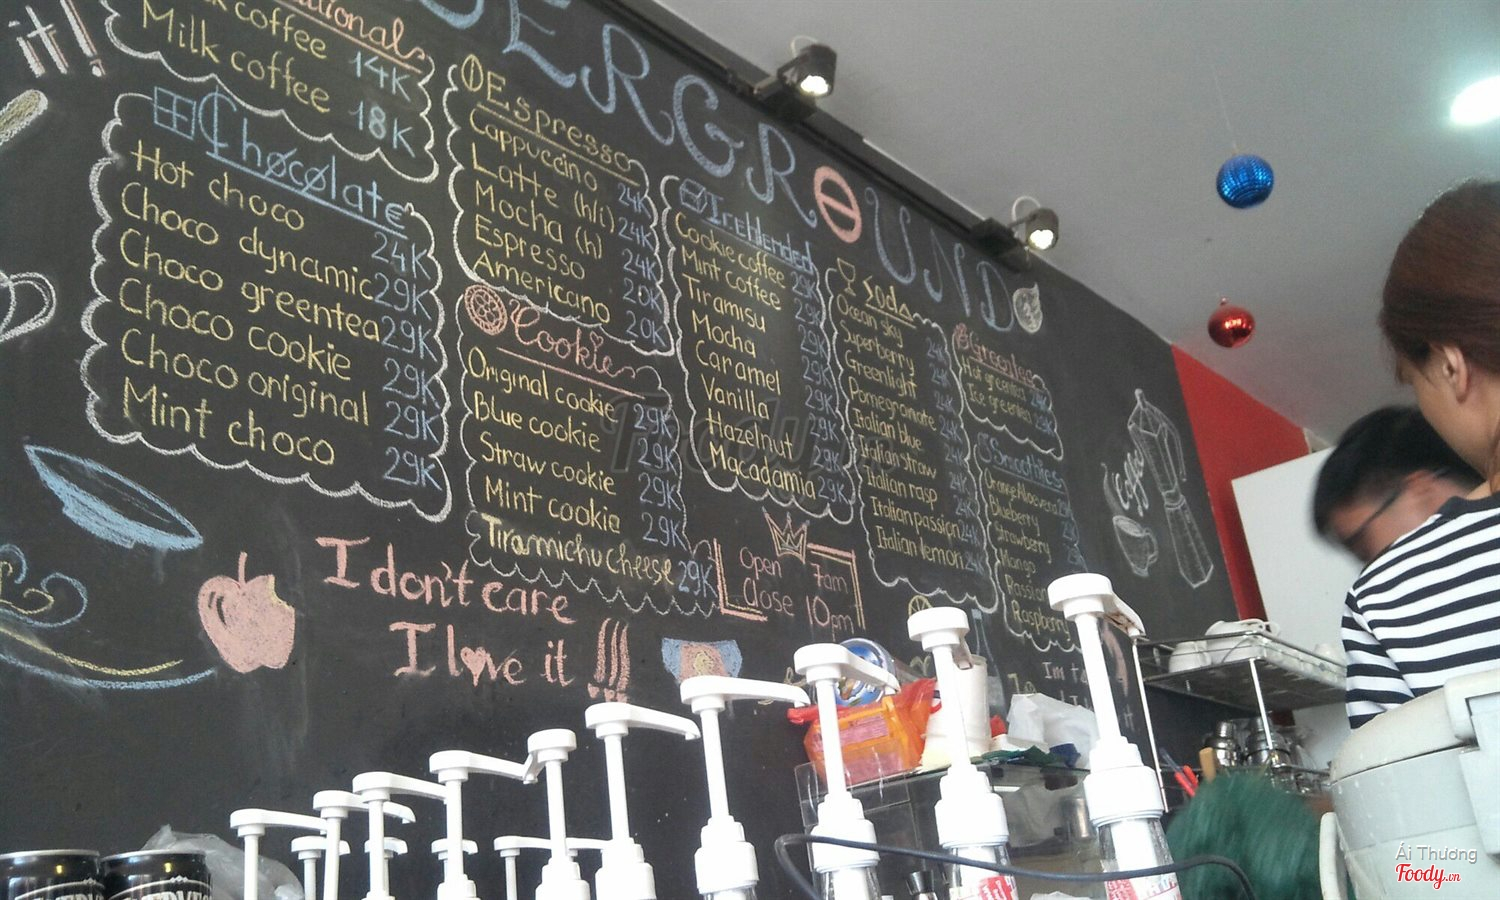 it!
ERGROUND
coffee 14K
Milk coffee 18K
Chocolate
Hot choco 24K
Choco dynamic 29K
Choco greentea 29K
Choco cookie 29K
Choco original 29K
Mint choco 29K
Espresso
Cappuccino 24K
Latte (h/i) 24K
Mocha (h) 24K
Espresso 20K
Americano 20K
Cookie
Original cookie 29K
Blue cookie 29K
Straw cookie 29K
Mint cookie 29K
Tiramichu cheese 29K
Ice blended
Cookie coffee 29K
Mint coffee 29K
Tiramisu 29K
Mocha 29K
Caramel 29K
Vanilla 29K
Hazelnut 29K
Macadamia 29K
Soda
Ocean sky 24K
Superberry 24K
Greenlight 24K
Pomegranate 24K
Italian blue 24K
Italian straw 24K
Italian rasp 24K
Italian passion 24K
Italian lemon 24K
Hot greentea
Ice greentea
Smoothies
Orange Aloe vera
Blueberry
Strawberry
Mango
Passion
Raspberry
Coffee
open 7am
close 10pm
I don't care
I love it
Foody
Ái Thương
Foody.vn